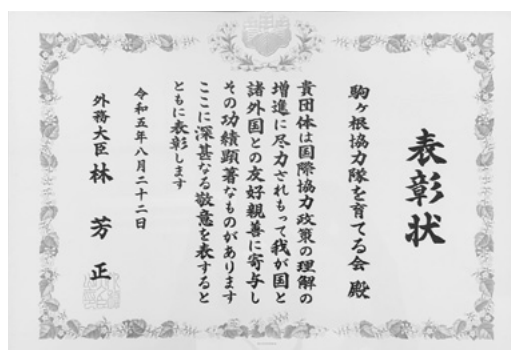 表彰状
駒ヶ根協力隊を育てる会 殿
貴団体は国際協力政策の理解の
増進に尽力されもって我が国と
諸外国との友好親善に寄与し
その功績顕著なものがあります
ここに深甚なる敬意を表すると
ともに表彰します
令和五年八月二十二日
外務大臣 林 芳 正